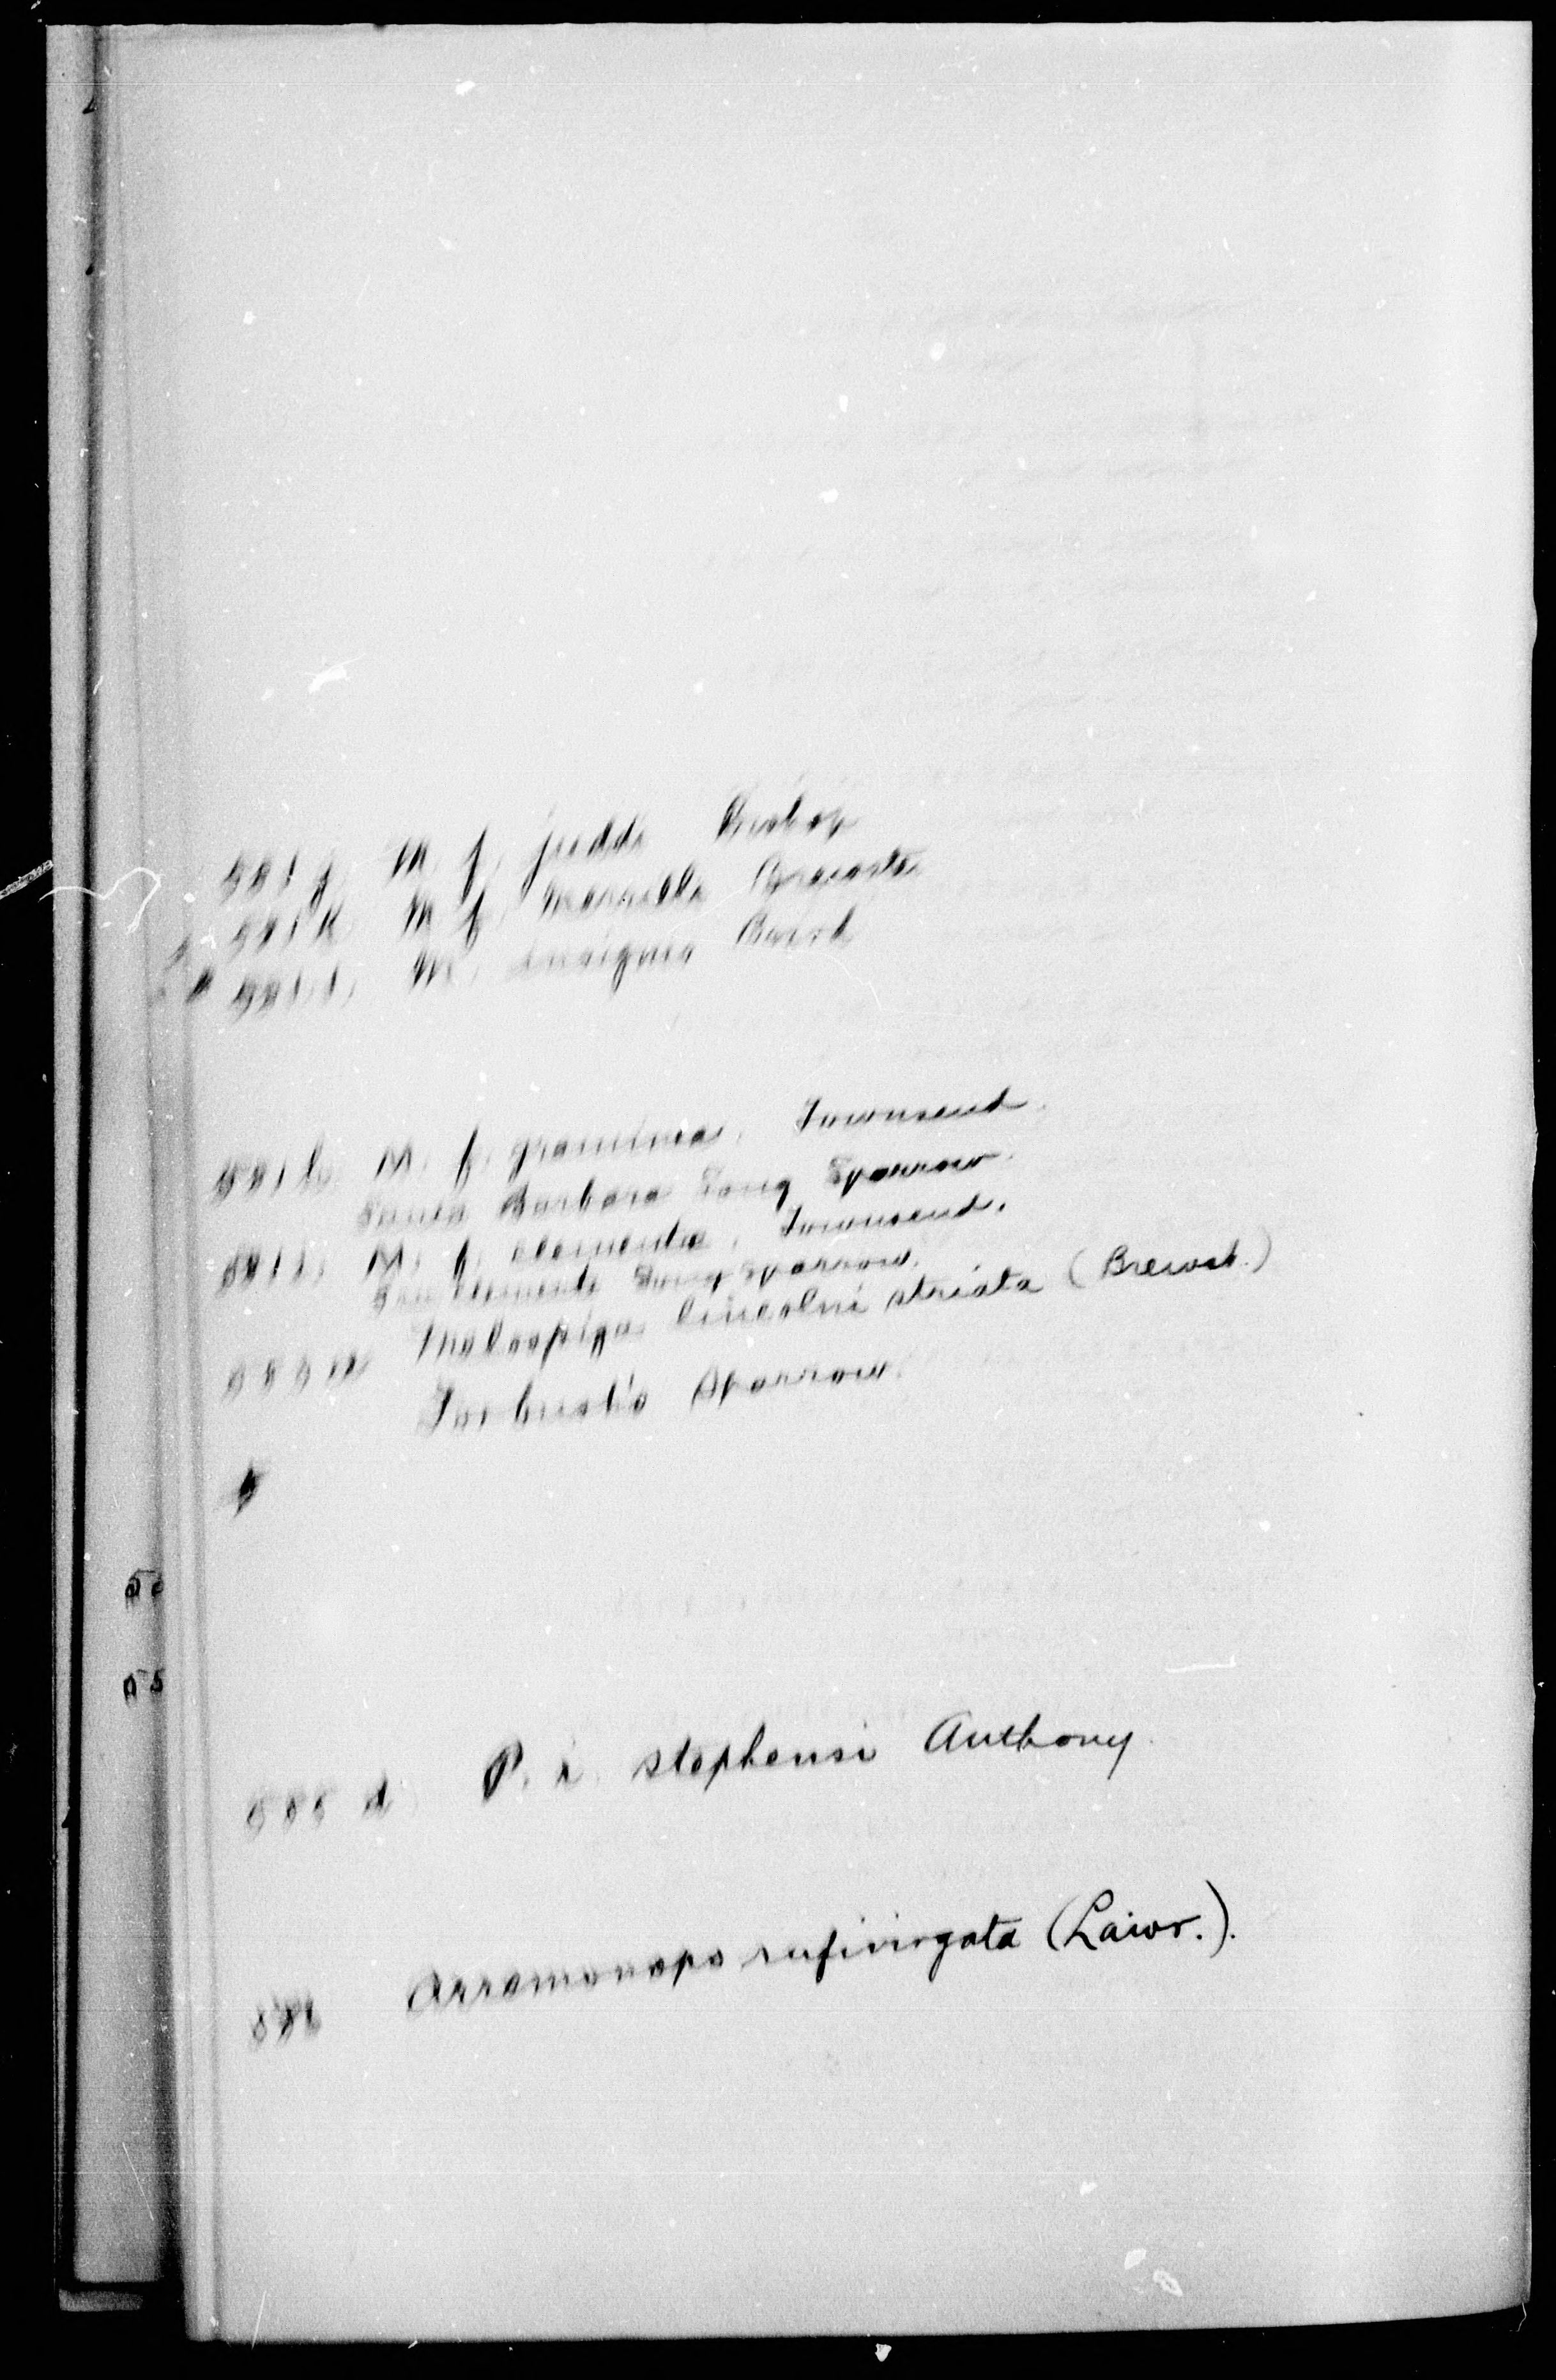 581 j. M. f. juddi Bishop
581 k M. f. merrilli Brewster
581.1. M. insignis Baird
581 h M. f. graminea, Townsend.
Santa Barbara Song Sparrow.
581 i. M. f. clementae, Townsend.
San Clemente Song Sparrow.
583 a Melospiza lincolni striata (Brewst.)
Forbush's Sparrow.
585 d P. i. stephensi Anthony.
586 Arremonops rufivirgata (Lawr.).